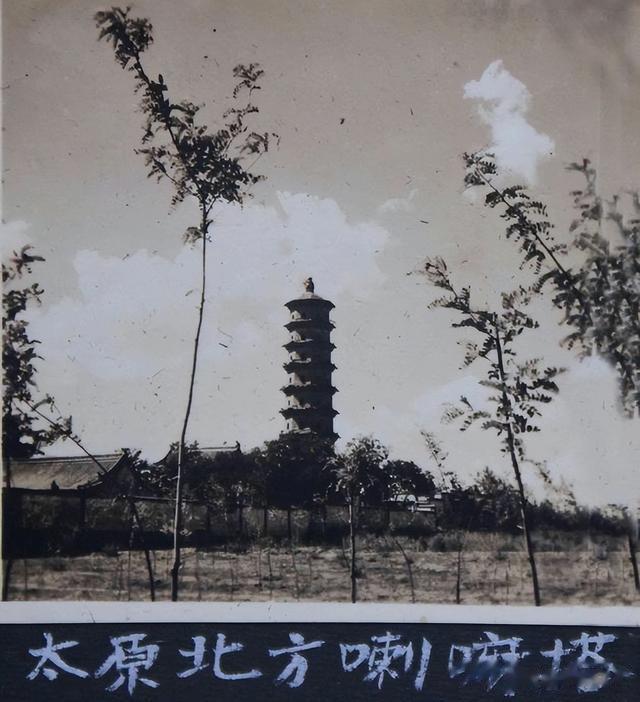 太原北方喇嘛塔